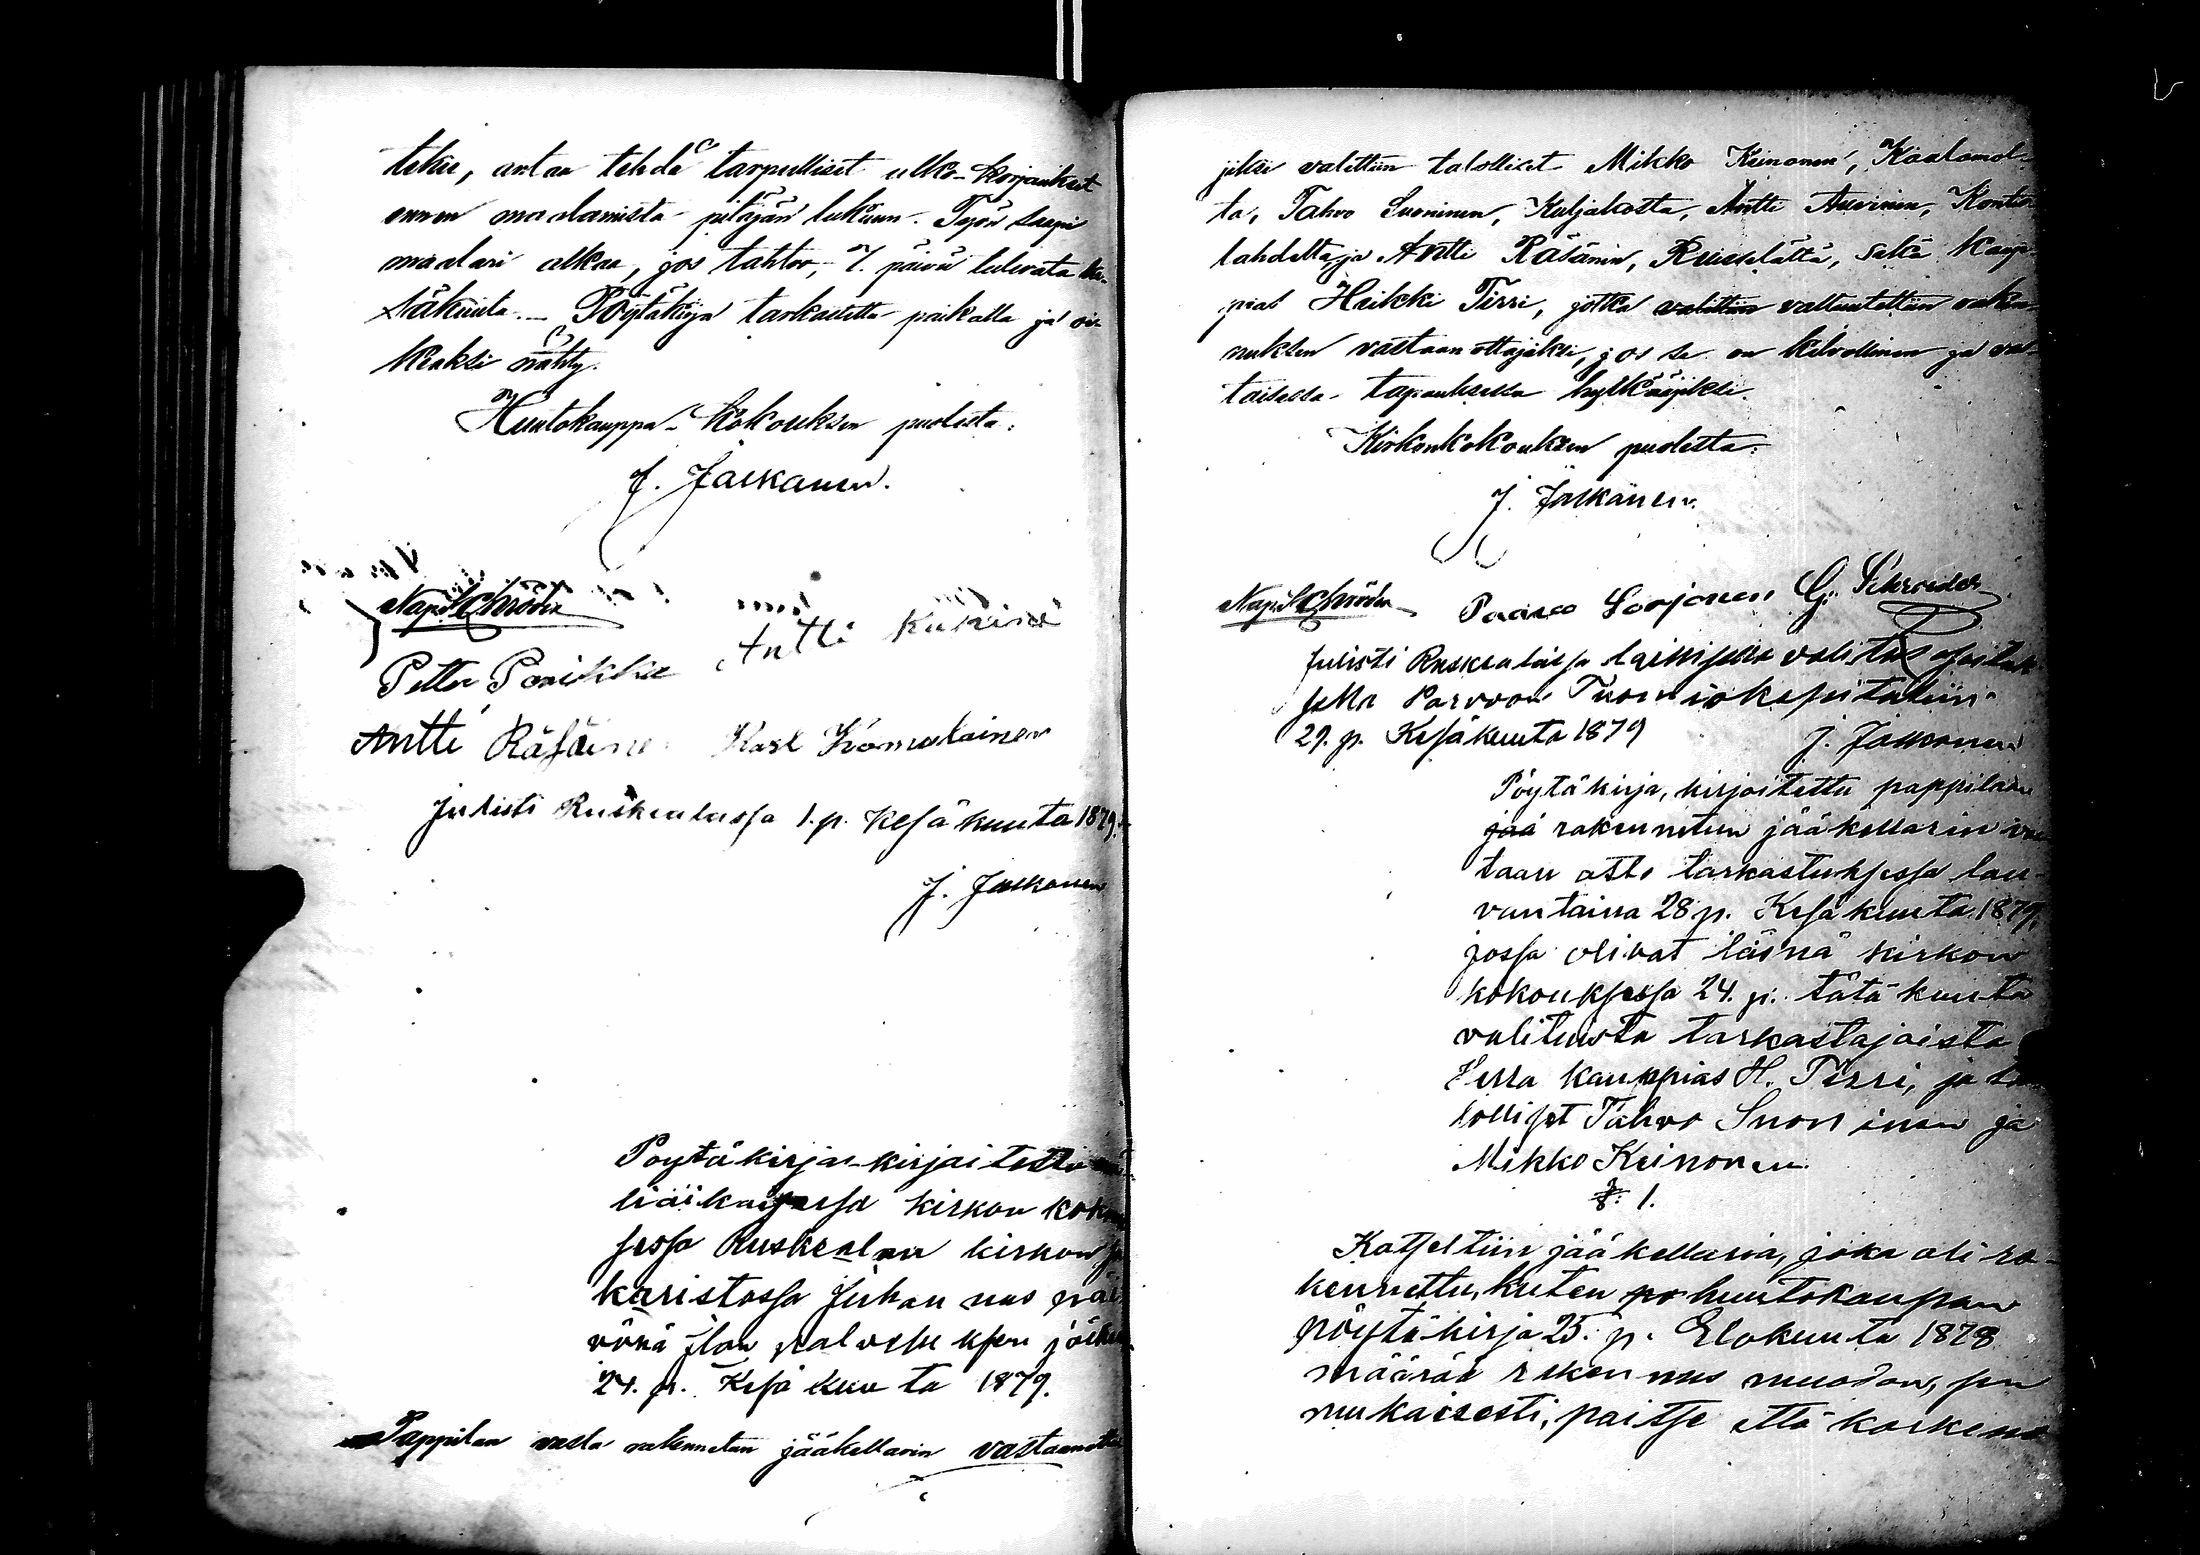 tekee, antaa tehdä tarpeelliset ulko-korjaukset
ennen maalamista pitäjän lukuun. Työn saapi
maalari alkaa, jos tahtoo, 7. päivä tulevata ke-
säkuuta. Pöytäkirja tarkastettu paikalla ja oi-
keaksi nähty.
Huutokauppa-kokouksen puolesta:
J. Jaskanen.
Nap. Schröder
Antti Kukko
Petter Parikka
Antti Räsäinen Karl Komulainen
Julisti Ruskealassa 1. p. Kesäkuuta 1879.
J. Jaskanen
Pöytäkirja kirjoitettu
kirkon koko
sessa Ruskealan kirkon sa
karistossa Juhannus päi
vänä Jlan palveluksen jälkeen
24. p. Kesäkuuta 1879.
Pappilan vasta rakennetun jääkellarin vastaanotta
jiksi valittiin talolliset Mikko Keinonen, Kaalamol-
ta, Tahvo Suoninen, Kuljakosta, Antti Auvinen, Kontio
lahdelta, ja Antti Räsänen, Ruiselältä, sekä Kaup-
pias Heikki Tirri, jotka valittiin valtuutettiin raken-
nuksen vastaanottajiksi, jos se on kelvollinen ja vas-
taisessa tapauksessa hylkääjiksi.
Kirkonkokouksen puolesta:
J. Jaskanen.
Nap. Schröder Paavo Sorjonen G. Schroeder
Julisti Ruskealassa valitus osoituk
sella Porvoon Tuomiokapituliin
29. p. Kesäkuuta 1879 J. Jaskanen
Pöytäkirja, kirjoitettu pappilaan
jää rakennetun jääkellarin vas
taan otto tarkastuksessa lau-
vantaina 28 p. Kesäkuuta 1879,
jossa olivat läsnä kirkon
kokouksessa 24. p. tätä kuuta
valituista tarkastajoista
Herra kauppias H. Tirri, ja ta
lolliset Tahvo Suoninen ja
Mikko Keinonen.
§. 1.
Katseltiin jääkellaria, joka oli ra-
kennettu, kuten po huutokaupan
pöytäkirja 25. p. Elokuuta 1878
määrää rakennus muodon, sen
mukaisesti, paitse että korkeus